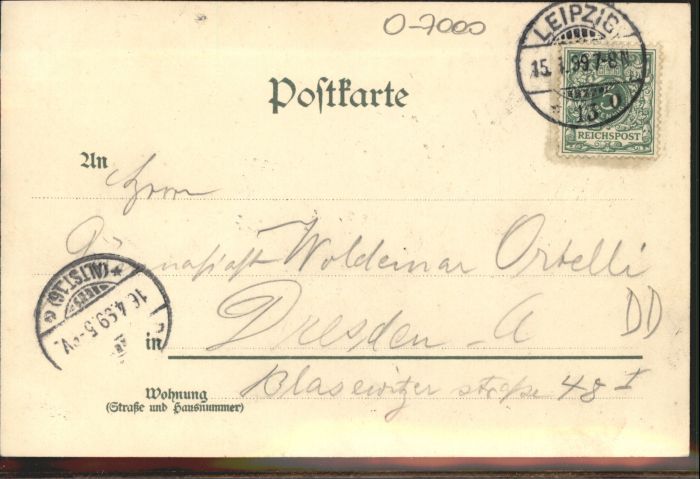 O-7000
LEIPZIG
15.4.99.7-8N
* 13.
5
REICHSPOST
Postkarte
An
Herrn
Woldemar Ortelli
(ALTST.16)
16.4.99.5-V.
in Dresden-A
DD
Wohnung Blasewitzer straße 48 I
(Straße und Hausnummer)